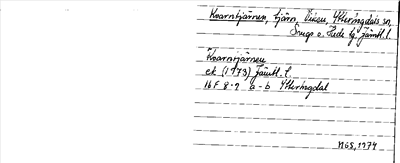 Kvarntjärnen, tjärn, Viken, Ytterhogdals sn,
Svegs o. Hede tg Jämtl. l.
Kvarntjärnen
ek (1973) Jämtl. l.
16F 8-9 a-b Ytterhogdal
NGS, 1974